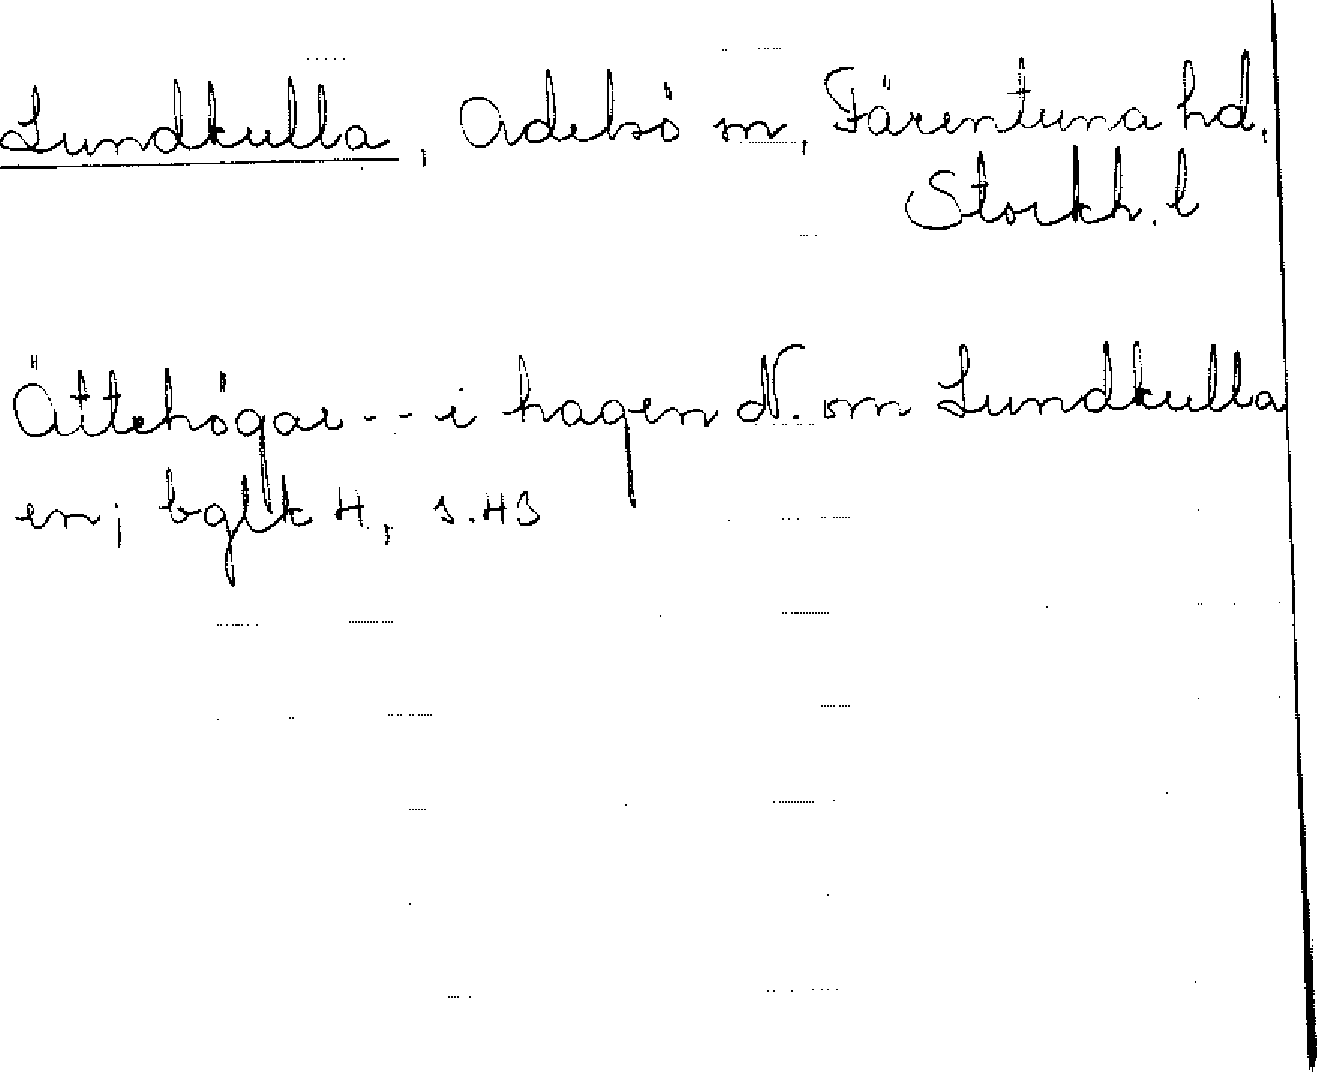 Lundkulla, Adelsö sn, Färentuna hd,
Stockh. l
Ättehögar -- i hagen N. om Lundkulla
en; bglk H, s.43